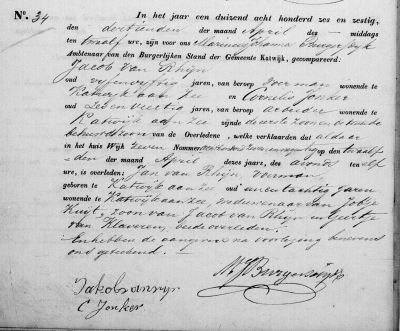 No. 34
In het jaar een duizend acht honderd zes en zestig,
den dertienden der maand April des middags
ten twaalf ure, zijn voor ons
Ambtenaar van den Burgerlijken Stand der Gemeente Katwijk, gecompareerd:
Jacob van Rhijn
oud jaren, van beroep Voerman wonende te
Katwijk aan Zee en Cornelis Jonker
oud zeven veertig jaren, van beroep arbeider wonende te
Katwijk aan Zee zijnde
van de Overledene, welke verklaarden dat aldaar
in het huis Wijk zeven Nommer op den twaalf-
-den der maand April dezes jaars, des avonds ten elf
ure, is overleden: Jan van Rhijn voerman
geboren te Katwijk aan Zee oud een en tachtig jaren
wonende te Katwijk aan Zee, weduwenaar van
Kuyt, zoon van Jacob van Rhijn en Geertje
van Klaveren, beide overleden.
En hebben de aangevers na voorlezing benevens
ons geteekend.
C Jonker